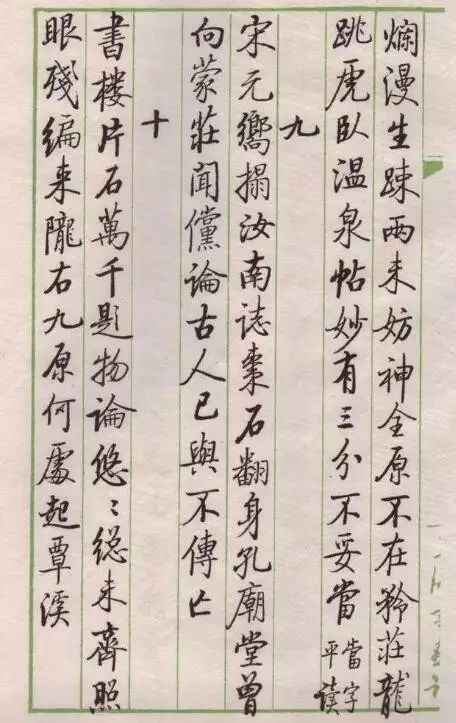 爛漫生踈兩未妨神全原不在矜莊龍
跳虎臥温泉帖妙有三分不妥當 當字平讀
九
宋元嚮搨汝南誌棗石翻身孔廟堂曾
向蒙莊聞讜論古人已與不傳亡
十
書楼片石萬千題物論悠〻緫未齊照
眼殘編来隴右九原何處起覃溪